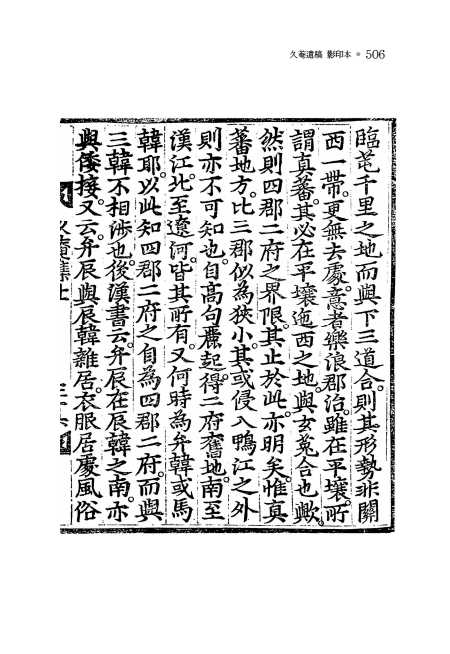 久菴遺稿 影印本 ● 506
臨芚千里之地而與下三道合。則其形勢非關
西一帶。更無去處。意者樂浪郡治。雖在平壤。所
謂真蕃。其必在平壤迤西之地。與玄菟合也歟。
然則四郡二府之界限。其止於此。亦明矣。惟真
蕃地方。比三郡似為狹小。其或侵入鴨江之外
則亦不可知也。自高句麗起。得二府舊地。南至
漢江。北至遼河。皆其所有。又何時為弁韓或馬
韓耶。以此知四郡二府之自為四郡二府。而與
三韓不相涉也。後漢書云。弁辰在辰韓之南。亦
與倭接。又云弁辰與辰韓雜居。衣服居處風俗